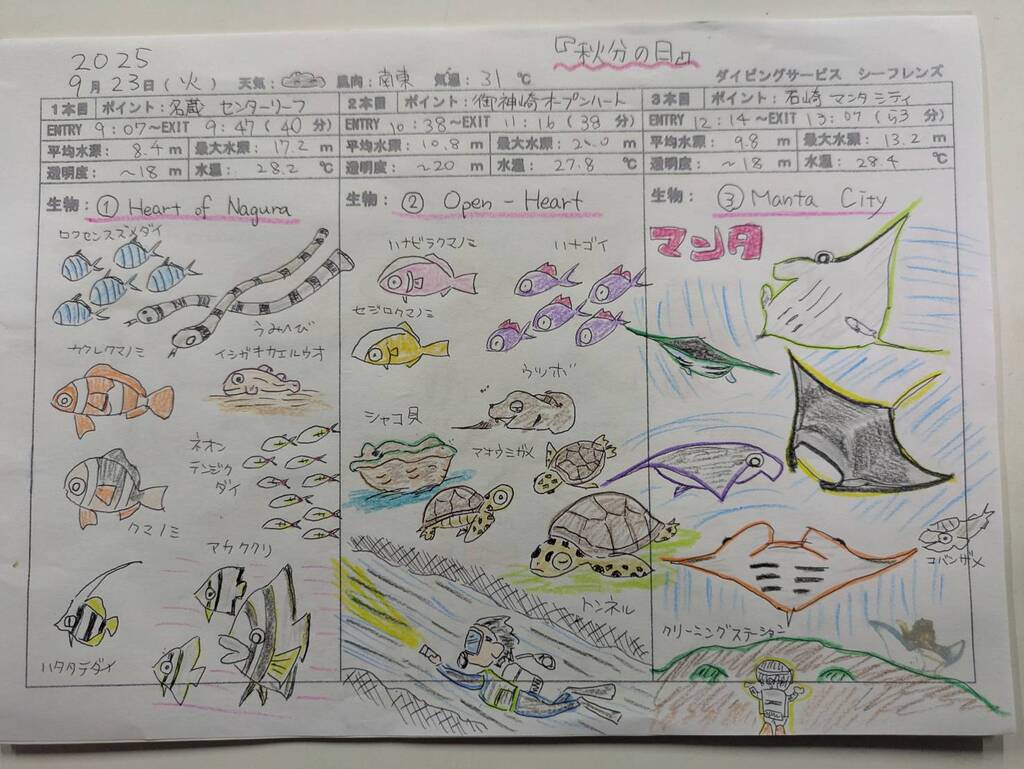 2025
『秋分の日』
9月23日(火) 天気: 風向:南東 気温:31℃ ダイビングサービス シーフレンズ
1本目 ポイント:名蔵 センターリーフ
ENTRY 9:07~EXIT 9:47(40分)
平均水深: 8.4m 最大水深: 17.2m
透明度: ~18m 水温: 28.2℃
生物: ① Heart of Nagura
ロクセンスズメダイ
うみへび
カクレクマノミ
イシガキカエルウオ
ネオン
テンジク
ダイ
クマノミ
アカククリ
ハタタテダイ
2本目 ポイント:御神崎オープンハート
ENTRY 10:38~EXIT 11:16(38分)
平均水深: 10.8m 最大水深: m
透明度: ~20m 水温: 27.8℃
生物: ② Open-Heart
ハナビラクマノミ
ハナゴイ
セジロクマノミ
ウツボ
シャコ貝
アオウミガメ
トンネル
3本目 ポイント:石崎 マンタシティ
ENTRY 12:14~EXIT 13:07(53分)
平均水深: 9.8m 最大水深: 13.2m
透明度: ~18m 水温: 28.4℃
生物: ③ Manta City
マンタ
コバンザメ
クリーニングステーション